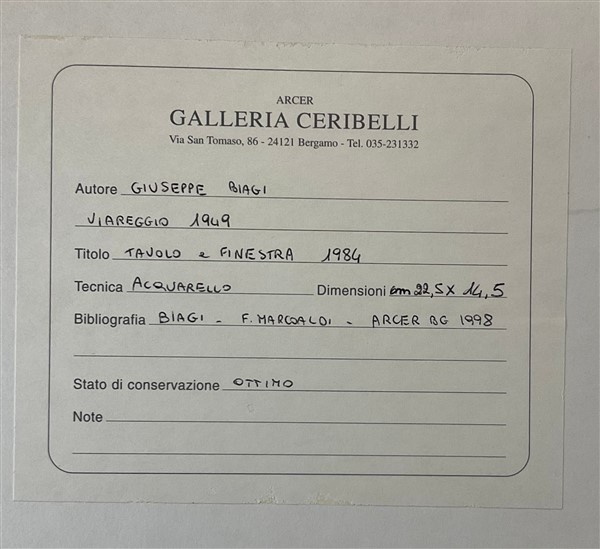 ARCER
GALLERIA CERIBELLI
Via San Tomaso, 86 - 24121 Bergamo - Tel. 035-231332
Autore GIUSEPPE BIAGI
VIAREGGIO 1949
Titolo TAVOLO e FINESTRA 1984
Tecnica ACQUARELLO Dimensioni cm 22,5 X 14,5
Bibliografia BIAGI - F. MARCOALDI - ARCER BG 1998
Stato di conservazione OTTIMO
Note